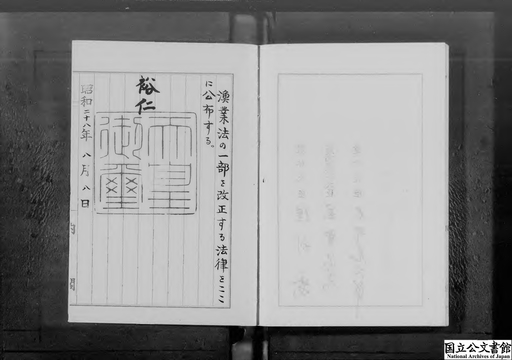 漁業法の一部を改正する法律をここ
に公布する。
裕仁
天皇
御璽
昭和二十八年 八月 八日
国立公文書館
National Archives of Japan